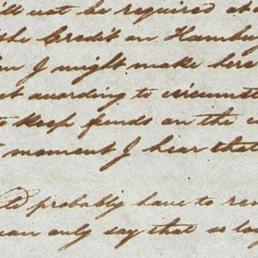 ill not be required at
the Credit on Hambu
I might make here
according to circumsta
keep funds on the
moment I hear that
probably have to re
can only say that so lo